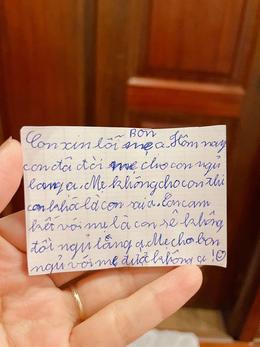 Bon
Con xin lỗi mẹ ạ. Hôm nay
con đã đòi mẹ cho con ngủ
lang ạ. Mẹ không cho con thì
con khóc là con sai ạ. Con cam
kết với mẹ là con sẽ không
đòi ngủ lằng ạ. Mẹ cho bon
ngủ với mẹ được không ạ!